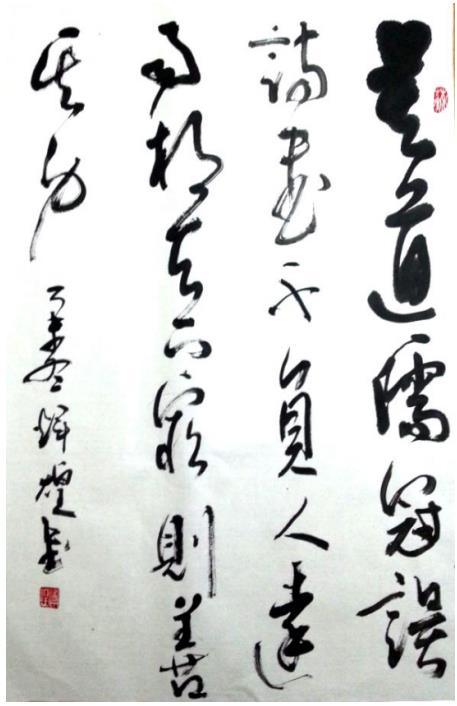 莫道儒冠誤
詩書不負人達
而相天下窮則善
其身
乙未冬煌書